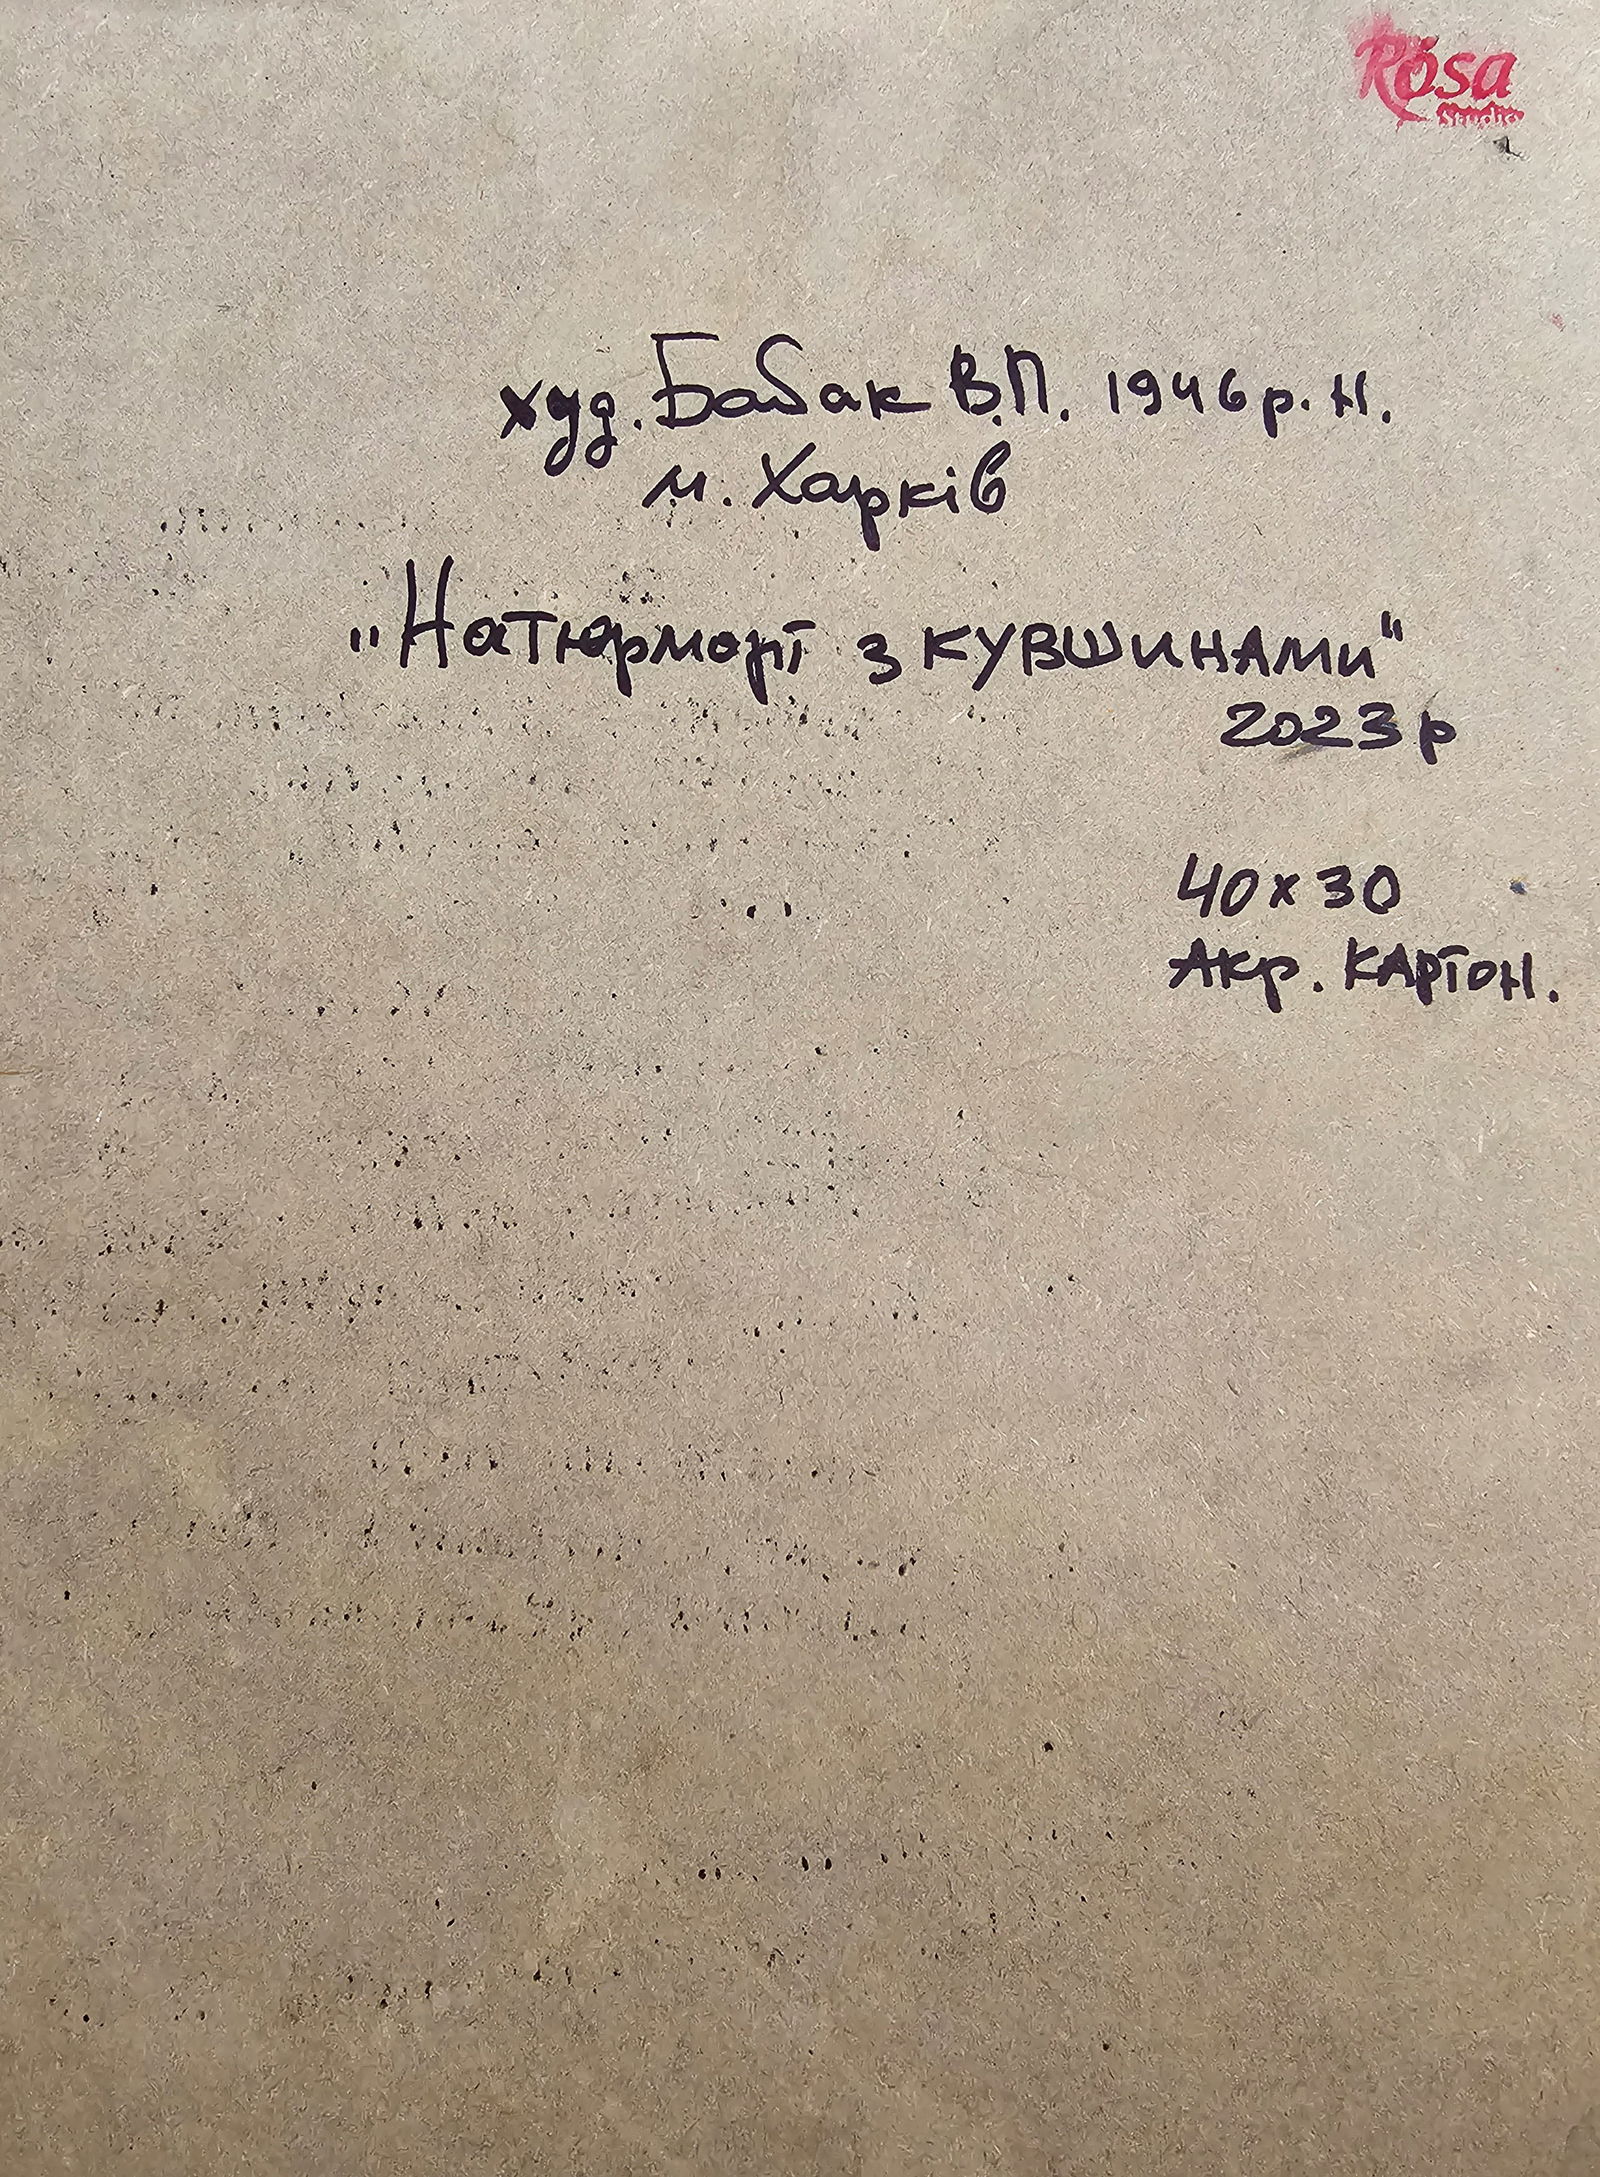 Rosa
Studio
худ. Бабак В.П. 1946 р. н.
м. Харків
„Натюрморт з кувшинами“
2023 р
40 х 30
Акр. картон.